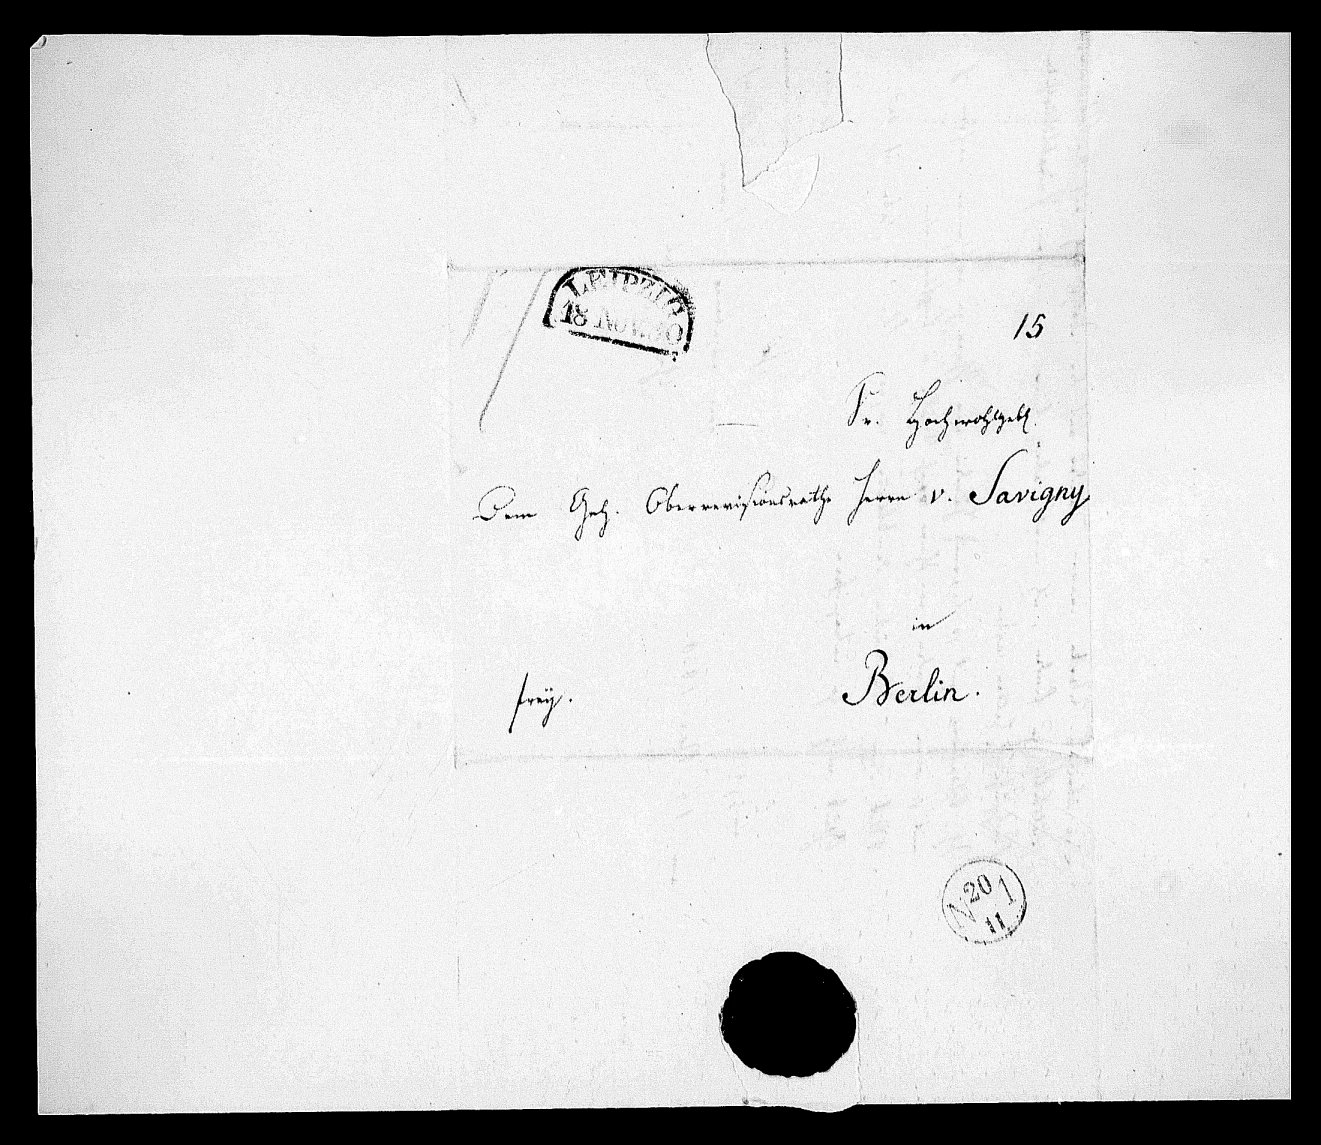 LEIPZIG
18 Nov. 30
15
Sr. Hochwohlgeb.
Dem Geh. Oberrevisionsrathe Herrn v. Savigny
in
Berlin.
frey.
20
N 1
11